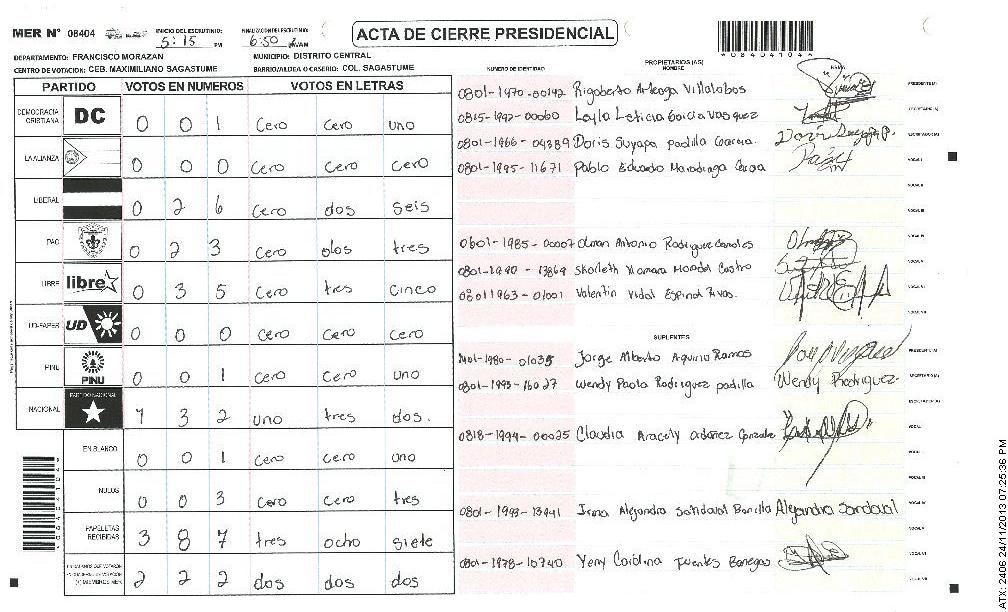 MER N° 08404 INICIO DEL ESCRUTINIO: 5:15 PM FINALIZACION DEL ESCRUTINIO: 6:50 ACTA DE CIERRE PRESIDENCIAL
DEPARTAMENTO: FRANCISCO MORAZAN MUNICIPIO: DISTRITO CENTRAL
CENTRO DE VOTACION: CEB. MAXIMILIANO SAGASTUME BARRIO/ALDEA O CASERIO: COL. SAGASTUME
PARTIDO VOTOS EN NUMEROS VOTOS EN LETRAS
DEMOCRACIA CRISTIANA DC 0 0 1 Cero Cero uno
LA ALIANZA 0 0 0 Cero Cero Cero
LIBERAL 0 2 6 Cero dos seis
PAC 0 2 3 Cero dos tres
LIBRE libre 0 3 5 Cero tres cinco
UD-FAPER UD 0 0 0 Cero Cero Cero
PINU PINU 0 0 1 Cero Cero uno
NACIONAL PARTIDO NACIONAL 1 3 2 uno tres dos.
EN BLANCO 0 0 1 Cero Cero uno
NULOS 0 0 3 Cero Cero tres
PAPELETAS RECIBIDAS 3 8 7 tres ocho siete
(+) MIEMBROS MER 2 2 2 dos dos dos
NUMERO DE IDENTIDAD PROPIETARIOS (AS) NOMBRE FIRMA
0801-1970-00142 Rigoberto Arteaga Villalobos PRESIDENTE(A)
0815-1992-00060 Layla Leticia Garcia Vasquez SECRETARIO(A)
0801-1966-04389 Doris Suyapa padilla Garcia. ESCRUTADOR(A)
0801-1995-11671 Pablo Eduardo VOCAL I
VOCAL II
VOCAL III
0601-1985-00007 Olman Antonio Rodriguez Canales VOCAL IV
0801-1990-13869 Skarleth Xiomara Castro VOCAL V
08011963-01001 Valentin Vidal Espinal Rivas. VOCAL VI
VOCAL VII
SUPLENTES
-1980-01035 Jorge Alberto Aquino Ramos PRESIDENTE(A)
0801-1993-16027 Wendy Paola Rodriguez padilla Wendy Rodriguez SECRETARIO(A)
ESCRUTADOR(A)
0818-1994-00025 Claudia Aracely ordoñez Gonzales VOCAL I
VOCAL II
VOCAL III
0801-1993-13941 Irma Alejandra Sandoval Bonilla Alejandra Sandoval VOCAL IV
VOCAL V
0801-1978-10740 Yeny Carolina Fuentes Banegas VOCAL VI
VOCAL VII
*084041044*
ATX: 2406 24/11/2013 07:25:36 PM